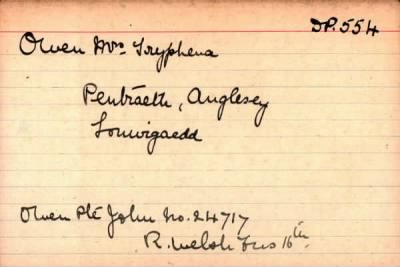 DP.554
Owen Mrs Tryphena
Pentraeth, Anglesey
Owen Pte John No. 24717
R. Welsh Fus 16th